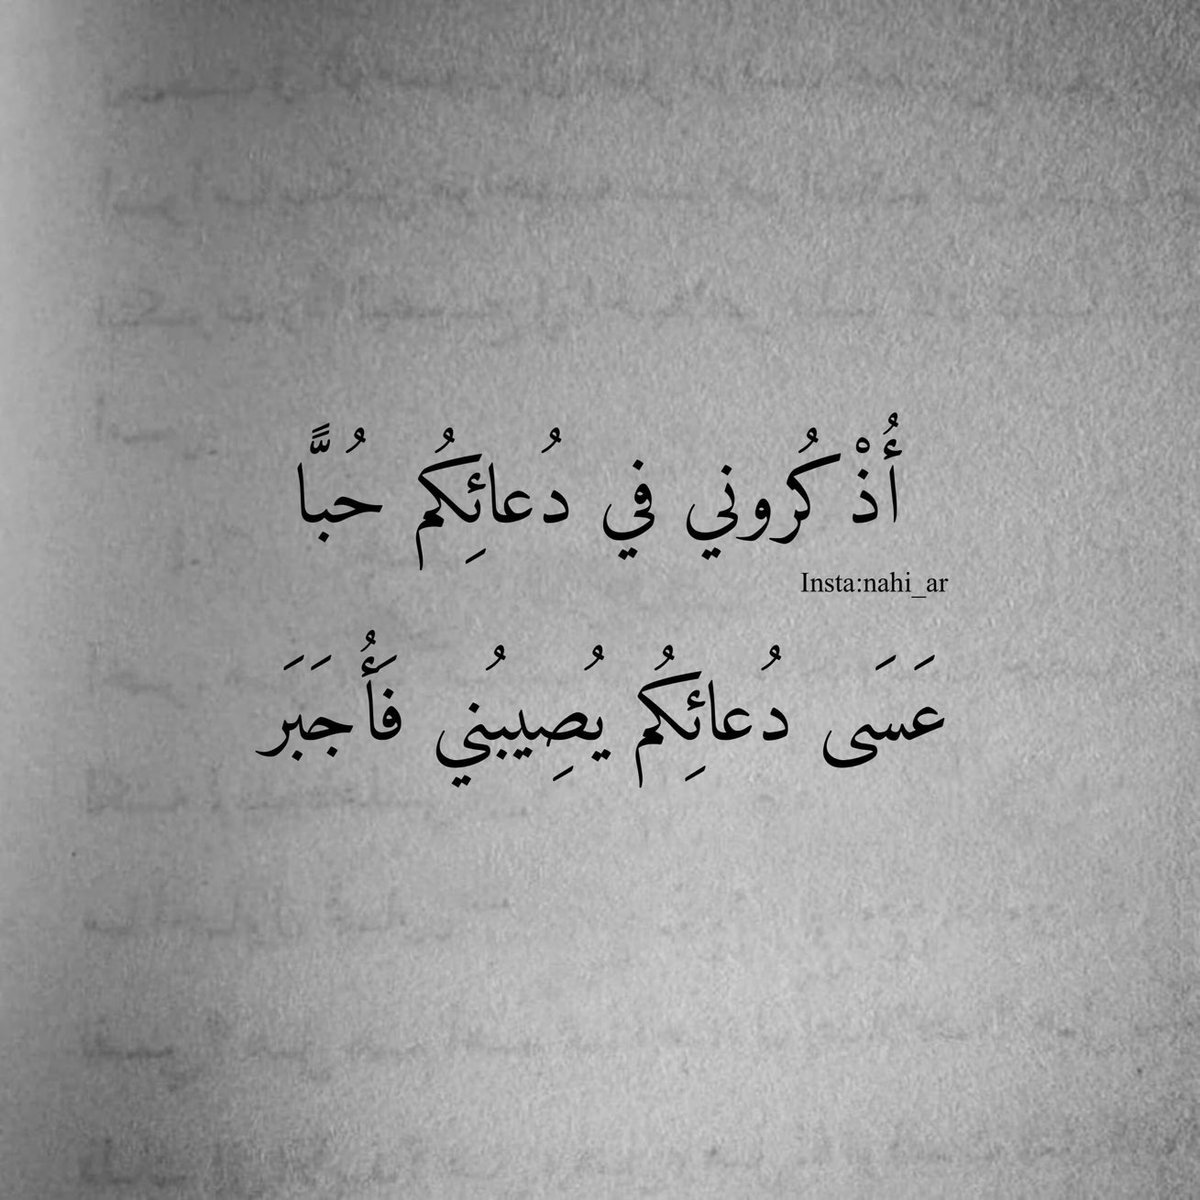 أُذْكُروني في دُعائِكُم حُبًّا
Insta:nahi_ar
عَسَى دُعائِكُم يُصِيبُني فَأُجبَرَ